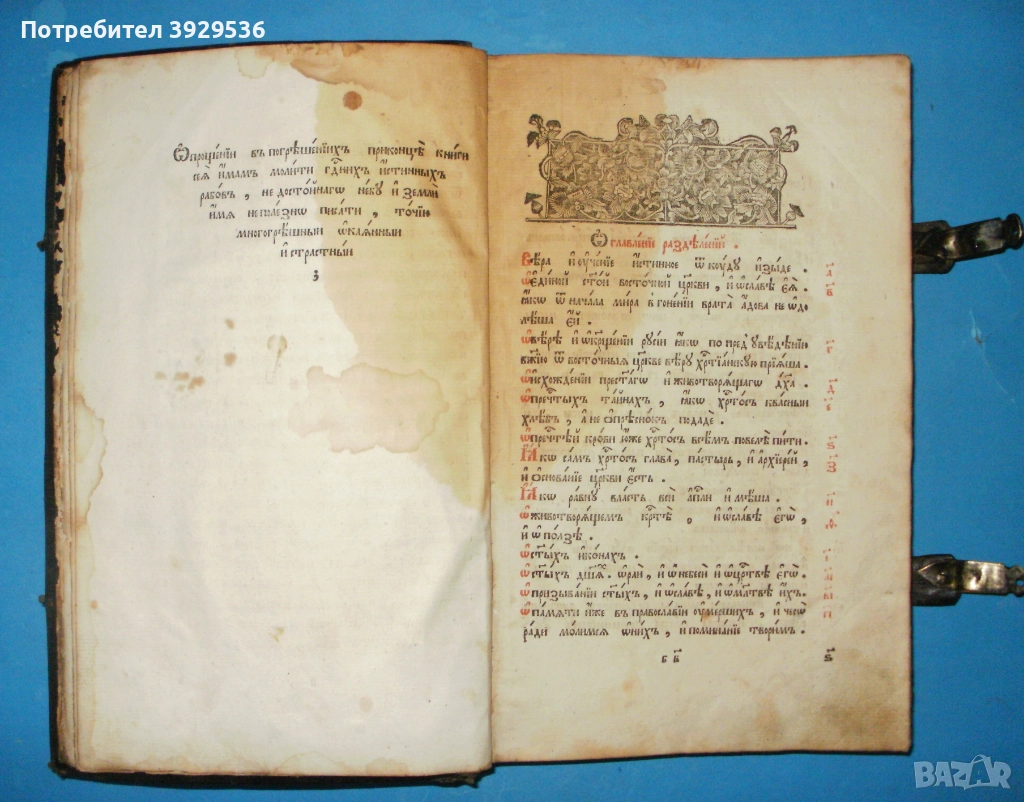 Потребител 3929536
Ѡ҆проще́нїи въ погрѣше́нїихъ приконцѐ кни́ги
сеѧ̀ и҆́мамъ моли́ти гдⷭ҇нихъ и҆́стинныхъ
рабо́въ, не досто́йнагѡ не́бу и҆ землѝ
и҆́мѧ неполе́знѡ писа́ти, то́чїю
многогрѣ́шныи ѡ҆каѧ́нныи
и҆ стра́стныи
Ѡ҆главле́нїе раздѣле́нїй.
Вѣ́ра и҆ ᲂу҆че́нїе и҆́стинное ѿкꙋ́дꙋ и҆зы́де. а҃
ѡ҆ є҆ди́ной ст҃о́й восто́чной цр҃кви, и҆ ѡ҆ сла́вѣ є҆ѧ̀. в҃
ꙗ҆́кѡ ѿ нача́ла ми́ра в гоне́нїи врата̀ а҆́дова не ѡ҆до
лѣ́ша є҆́й.
ѡ҆ вѣ́рѣ и҆ ѡ҆ кр҃ще́нїи рꙋсі́и ꙗ҆́кѡ по пред̾ꙋвѣ́дѣнїю г҃
бж҃їю ѿ восто́чныѧ цр҃кве вѣ́рꙋ хрⷭ҇тїа́нскꙋю прїѧ́ша.
ѡ҆ нехожде́нїи прест҃а́гѡ и҆ животворѧ́щагѡ дх҃а. д҃
ѡ҆ пречⷭ҇тыхъ та́йнахъ, ꙗ҆́кѡ хрⷭ҇то́съ ква́сныи є҃
хлѣ́бъ, а҆ не ѡ҆прѣсно́къ подадѐ.
ѡ҆ пречⷭ҇тѣй кро́ви ю҆́же хрⷭ҇то́съ всѣ́мъ повелѣ̀ пи́ти. ѕ҃
Ꙗ҆́кѡ са́мъ хрⷭ҇то́съ глава̀, па́стырь, и҆ а҆рхїере́й, з҃
и҆ ѡ҆снова́нїе цр҃кви є҆́сть.
Ꙗ҆́кѡ ра́внꙋ вла́сть всѝ а҆пⷭ҇ли и҆мѣ́ша. и҃
ѡ҆ животворѧ́щемъ крⷭ҇тѣ̀, и҆ ѡ҆ сла́вѣ є҆гѡ̀, ѳ҃
и҆ ѡ҆ по́лзѣ.
ѡ҆ ст҃ы́хъ и҆ко́нахъ.
ѡ҆ ст҃ы́хъ дш҃а́хъ. ѡ҆ раѝ, и҆ ѡ҆ небесѝ и҆ ѡ҆ црⷭ҇твѣ є҆гѡ̀.
ѡ҆ призыва́нїи ст҃ы́хъ, и҆ ѡ҆ сла́вѣ, и҆ ѡ҆ мл҃твѣ и҆́хъ.
ѡ҆ па́мѧти и҆́же въ правосла́вїи ᲂу҆ме́ршихъ, и҆ чесѡ̀
ра́ди мо́лимсѧ ѡ҆ ни́хъ, и҆ помина́нїе твори́мъ.
BAZAR